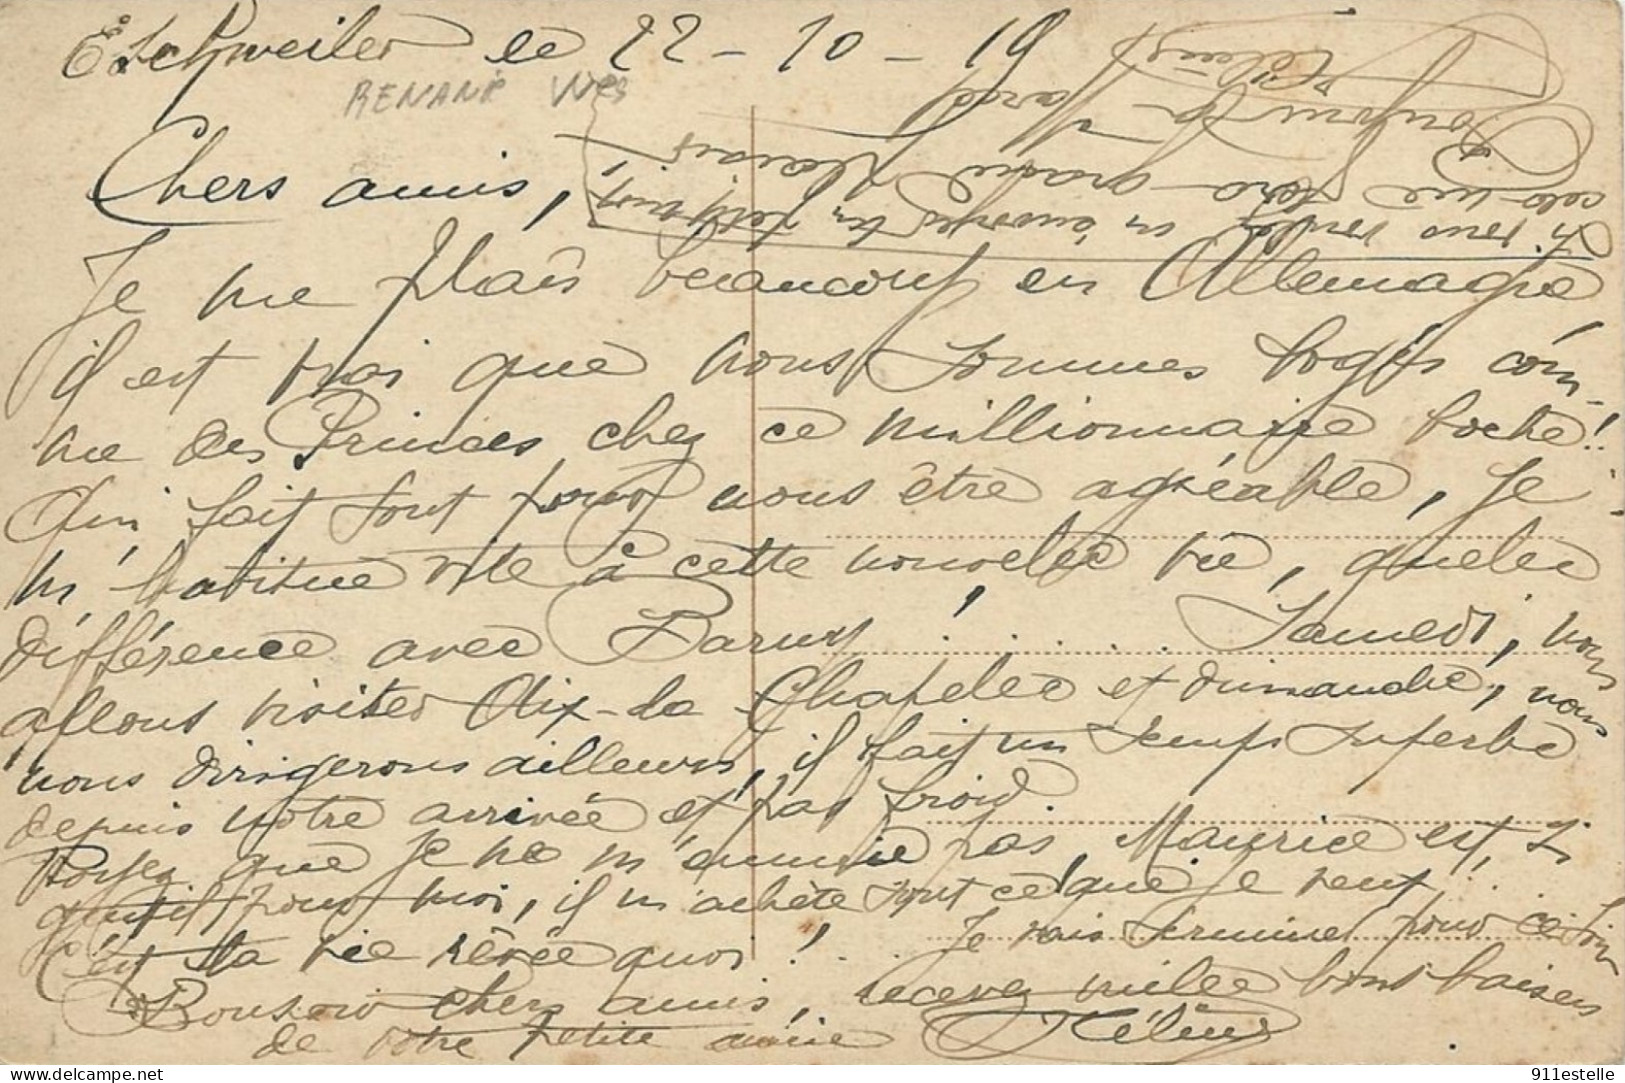 Eschweiler le 22-10-19
RENANIE
Chers amis,
Je me plais beaucoup en Allemagne
il est vrai que nous sommes logés com-
me des Princes chez ce millionnaire boche!!
Qui fait tout pour nous être agréable, je
m'habitue vite à cette nouvelle vie, quelle
différence avec Paris! ..... Samedi, nous
allons visiter Aix-la-Chapelle et dimanche, nous
nous dirigerons ailleurs, il fait un temps superbe
depuis notre arrivée et pas froid.
Voyez que je ne m'ennuie pas, Maurice est si
gentil pour moi, il m'achète tout ce que je veux,...
C'est la vie rêvée quoi!... Je vais terminer pour ce soir
Bonsoir chers amis, recevez mille bons baisers
de votre petite amie Hélène
Si vous voulez m'envoyer un petit mot
cela me fera grand plaisir
Hélène
911estelle